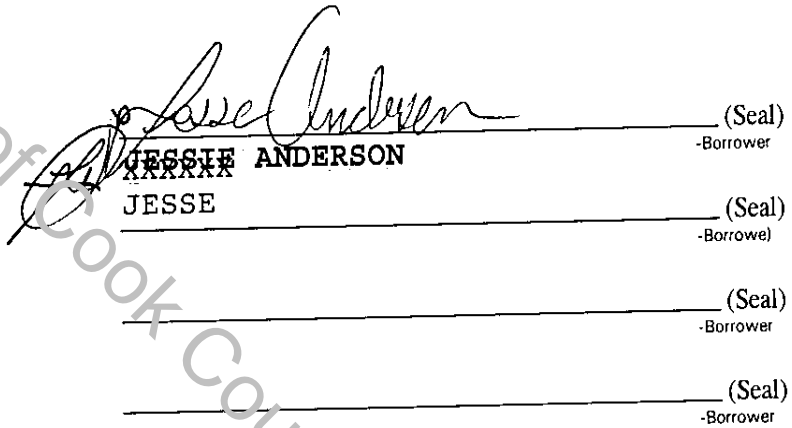 Jesse Anderson (Seal)
-Borrower
JESSIE ANDERSON
XXXXXX
JESSE (Seal)
-Borrower
(Seal)
-Borrower
(Seal)
-Borrower
of Cook Cou